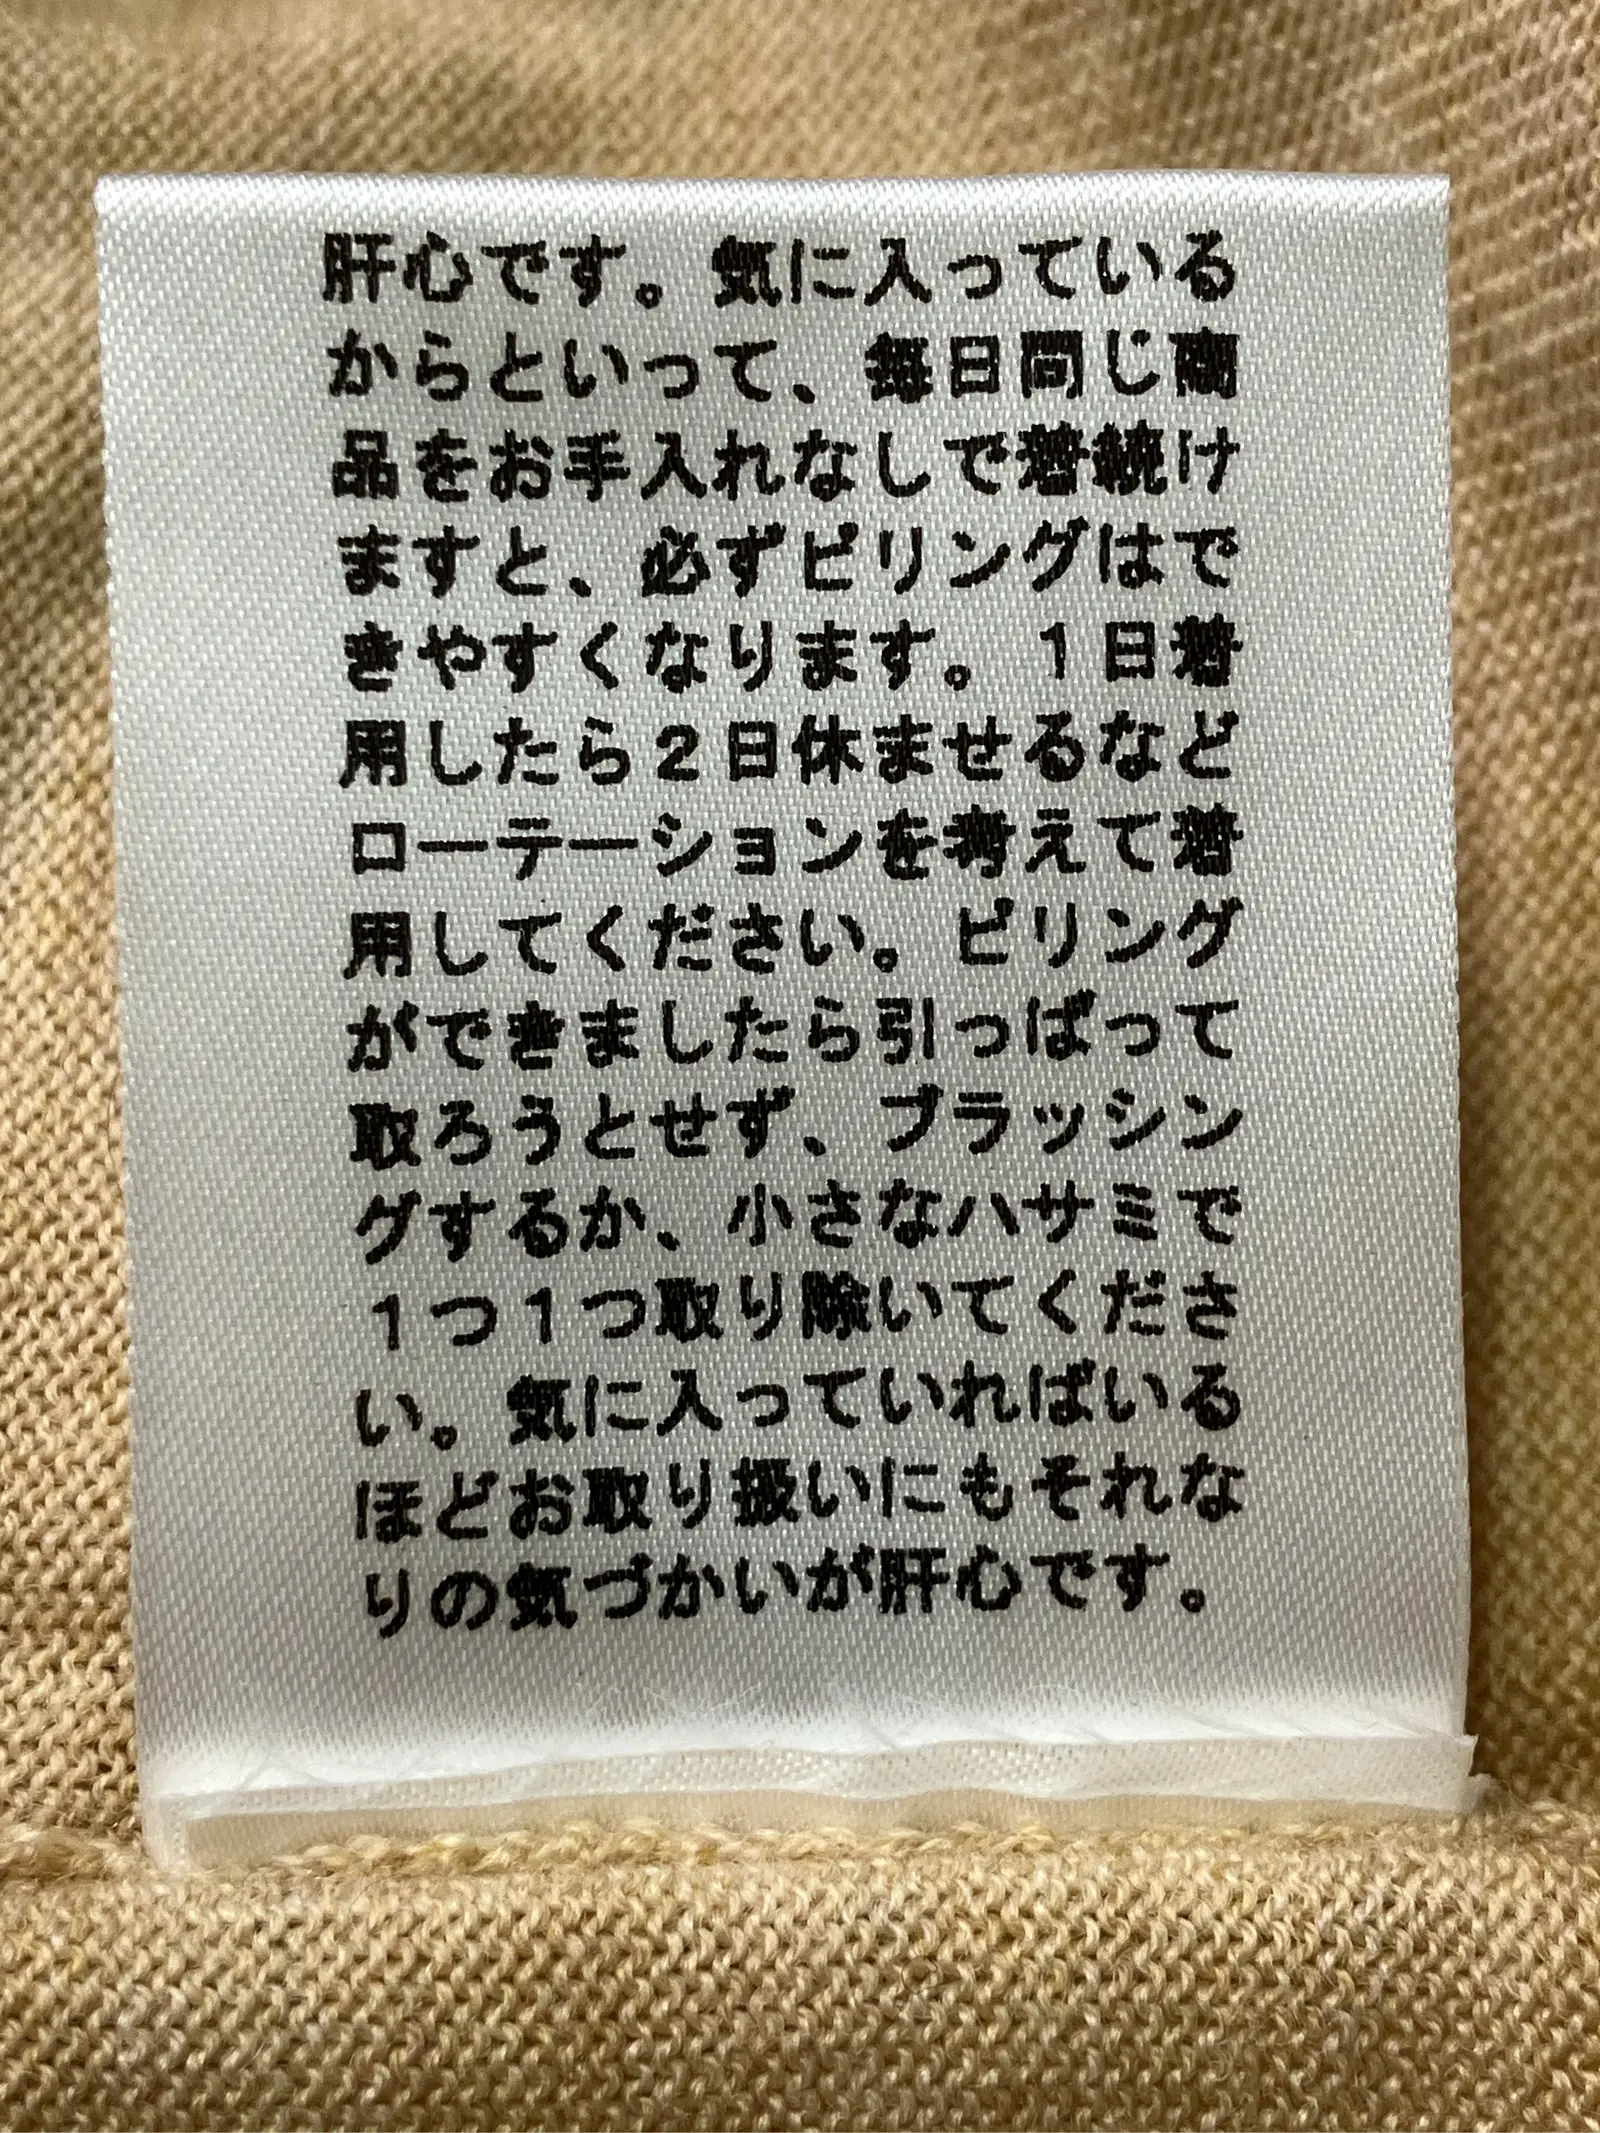 肝心です。気に入っている
からといって、毎日同じ商
品をお手入れなしで着続け
ますと、必ずピリングはで
きやすくなります。1日着
用したら2日休ませるなど
ローテーションを考えて着
用してください。ピリング
ができましたら引っぱって
取ろうとせず、ブラッシン
グするか、小さなハサミで
1つ1つ取り除いてくださ
い。気に入っていればいる
ほどお取り扱いにもそれな
りの気づかいが肝心です。